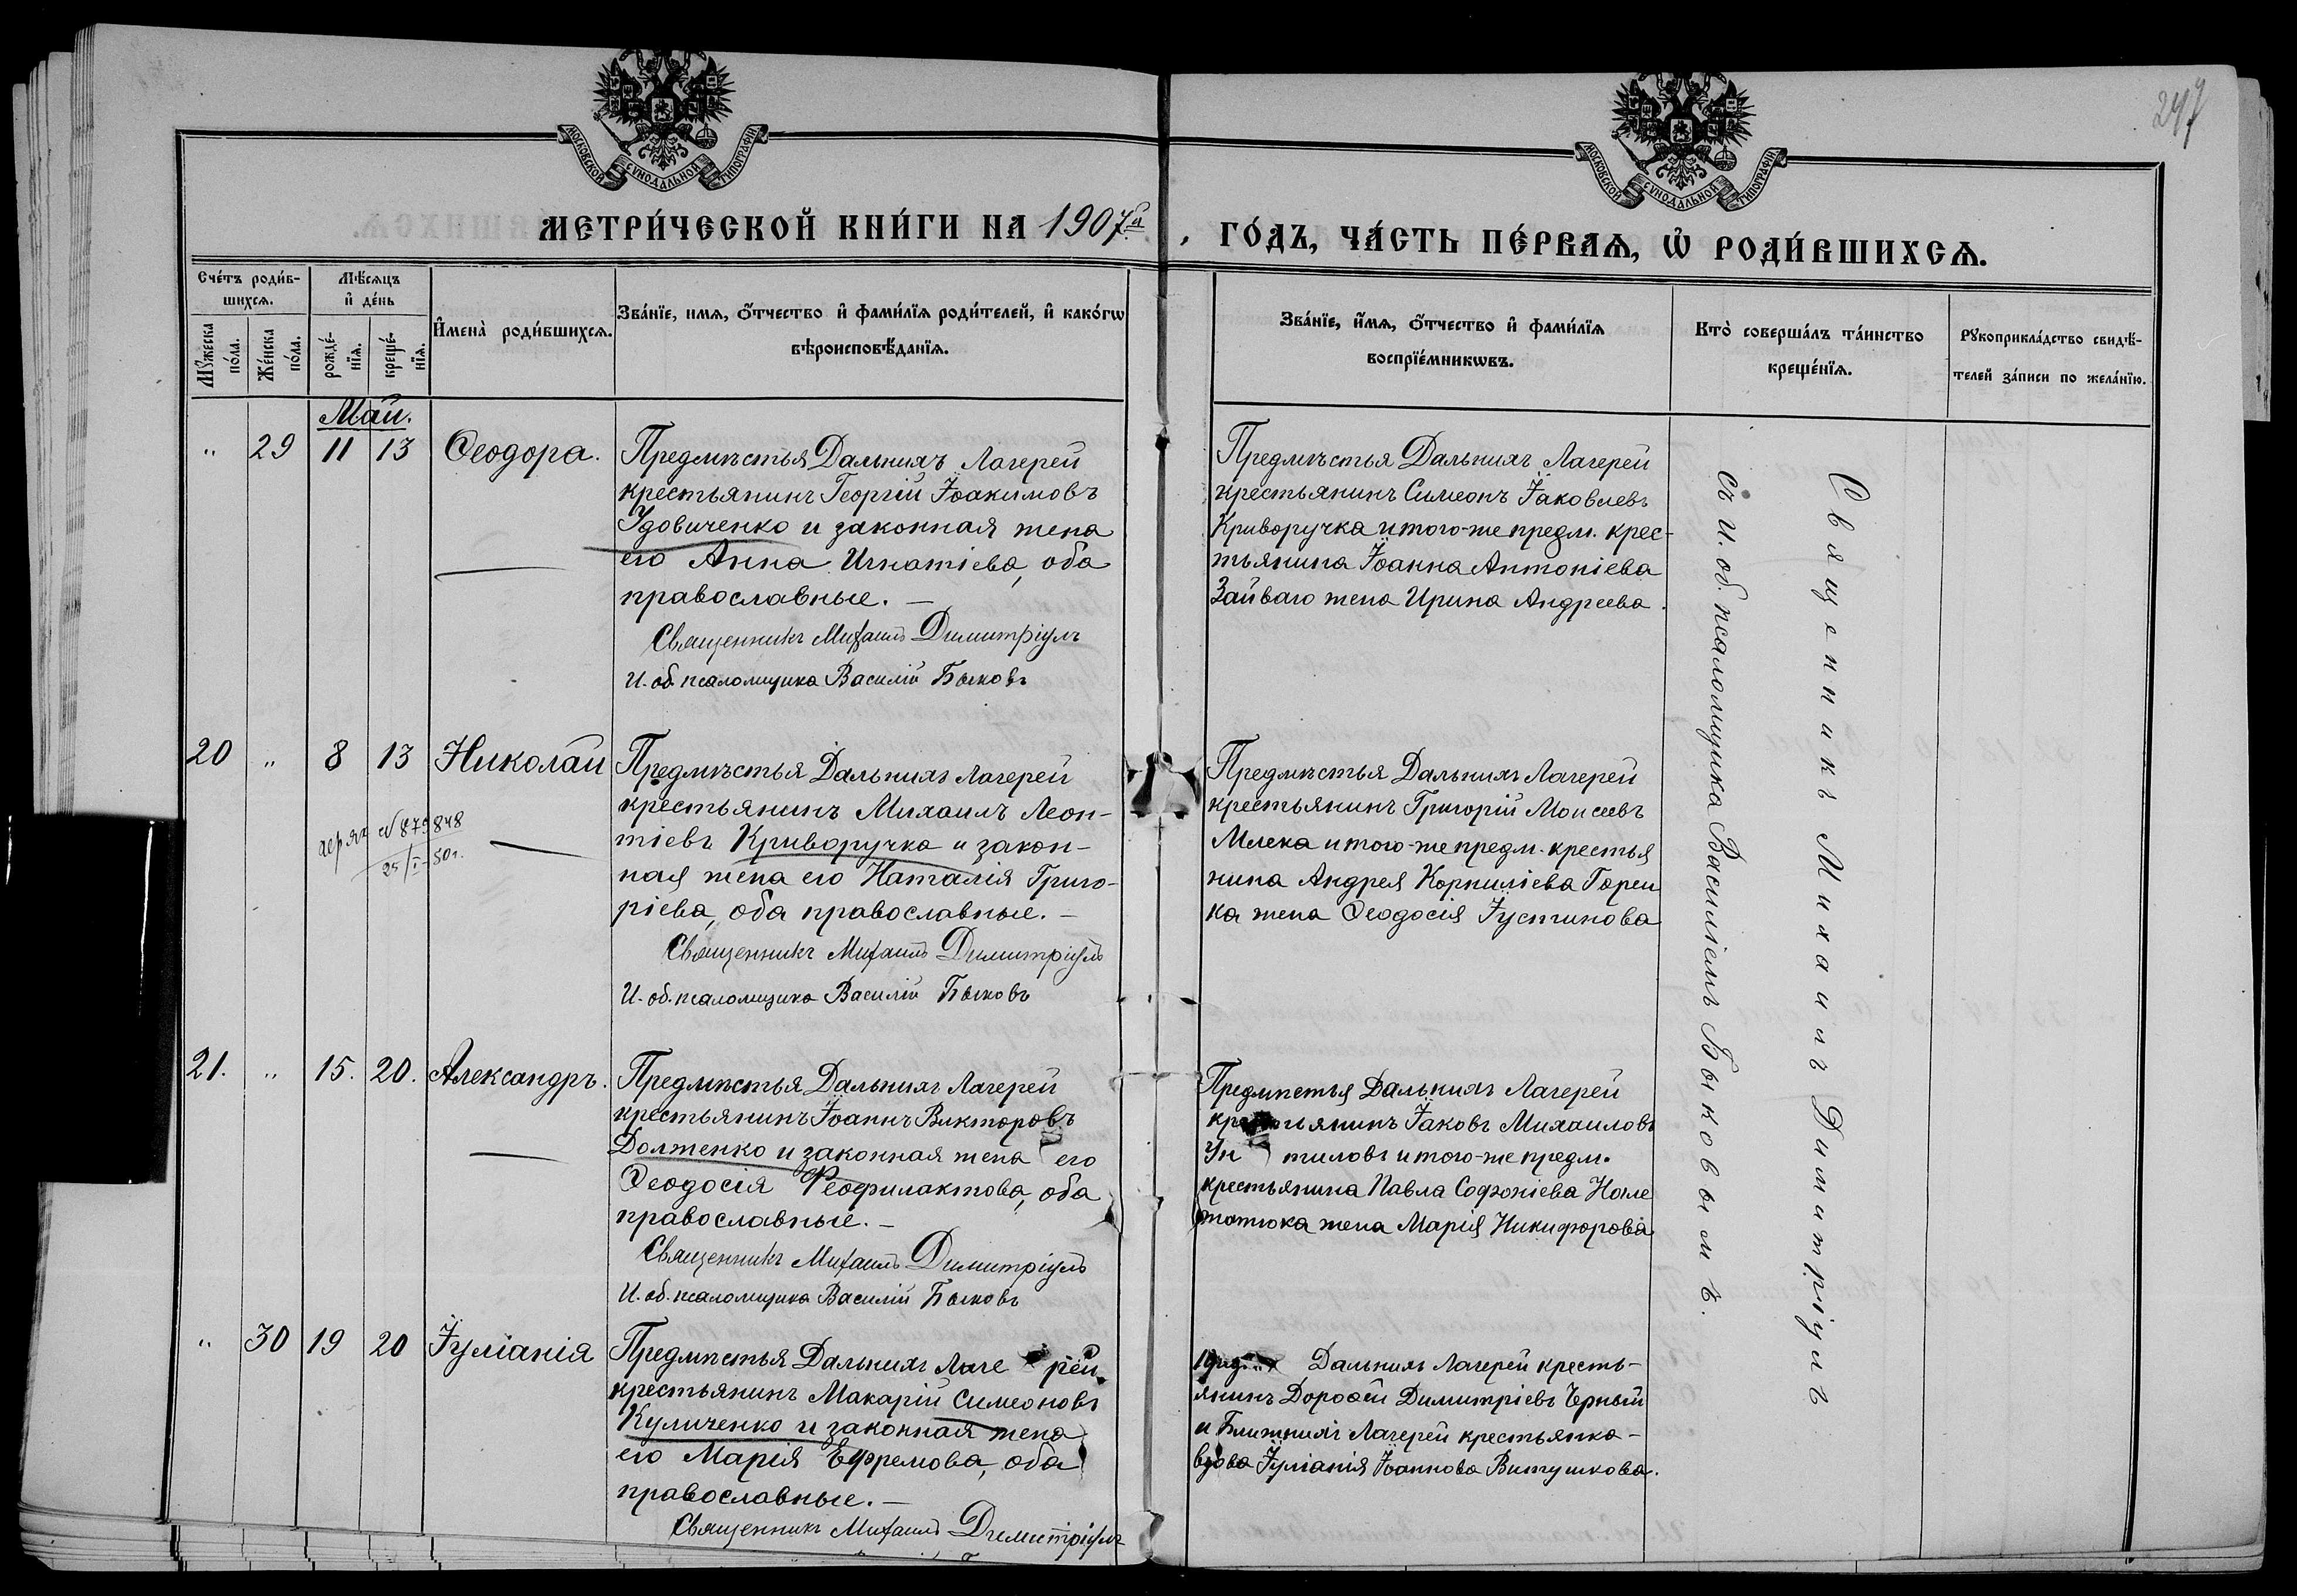 247
МОСКОВСКОЙ СѴНОДАЛЬНОЙ ТИПОГРАФІИ
МОСКОВСКОЙ СѴНОДАЛЬНОЙ ТИПОГРАФІИ
МЕТРИ́ЧЕСКОЙ КНИ́ГИ НА 1907й, ГО́ДЪ, ЧА́СТЬ ПЕ́РВАѦ, Ѡ҆ РОДИ́ВШИХСѦ.
Сче́тъ роди́в-
шихсѧ.
Мꙋ́жеска по́ла.
Же́нска по́ла.
Мѣ́сѧцъ
и҆ де́нь
рожде́-
нїѧ.
креще́-
нїѧ.
И҆мена̀ роди́вшихсѧ.
Зва́нїе, имѧ, ѻ҆́тчество и҆ фами́лїѧ роди́телей, и҆ како́гѡ
вѣроисповѣ́данїѧ.
Зва́нїе, и҆́мѧ, ѻ҆́тчество и҆ фами́лїѧ
воспрїе́мникѡвъ.
Кто̀ соверша́лъ та́инство
креще́нїѧ.
Рꙋкоприкла́дство свидѣ́-
телей за́писи по жела́нїю.
Май.
" 29 11 13 Ѳеодора.
Предмѣстья Дальнихъ Лагерей
крестьянинъ Георгій Іоакимовъ
Удовиченко и законная жена
его Анна Игнатіева, оба
православные. —
Священникъ Михаилъ Димитріулъ
И. об. псаломщика Василій Быковъ
Предмѣстья Дальнихъ Лагерей
крестьянинъ Симеонъ Іаковлевъ
Криворучка и того-же предм. крес-
тьянина Іоанна Антоніева
Зайваго жена Ирина Андреева.
20 " 8 13 Николай
N 879848
25/I-50г.
Предмѣстья Дальнихъ Лагерей
крестьянинъ Михаилъ Леон-
тіевъ Криворучка и закон-
ная жена его Наталія Григо-
ріева, оба православные. —
Священникъ Михаилъ Димитріулъ
И. об. псаломщика Василій Быковъ
Предмѣстья Дальнихъ Лагерей
крестьянинъ Григорій Моисеевъ
Млека и того-же предм. крестья
нина Андрея Корниліева Горен
ка жена Ѳеодосія Іустинова
21. " 15. 20. Александръ.
Предмѣстья Дальнихъ Лагерей
крестьянинъ Іоаннъ Викторовъ
Долженко и законная жена его
Ѳеодосія Феофилактова, оба
православные. —
Священникъ Михаилъ Димитріулъ
И. об. псаломщика Василій Быковъ
Предмѣстья Дальнихъ Лагерей
крестьянинъ Іаковъ Михаиловъ
и того-же предм.
крестьянина Павла Софоніева
жена Марія Никифорова
" 30 19 20 Іуліанія
Предмѣстья Дальнихъ Лагерей
крестьянинъ Макарій Симеоновъ
Куличенко и законная жена
его Марія Ефремова, оба
православные. —
Священникъ Михаилъ Димитріулъ
Дальнихъ Лагерей кресть-
янинъ Дороѳей Димитріевъ Черный
и Ближнихъ Лагерей крестьянка-
вдова Іуліанія Іоаннова Витушкова.
Священникъ Михаилъ Димитріулъ
съ И. об. псаломщика Василіемъ Быковымъ.